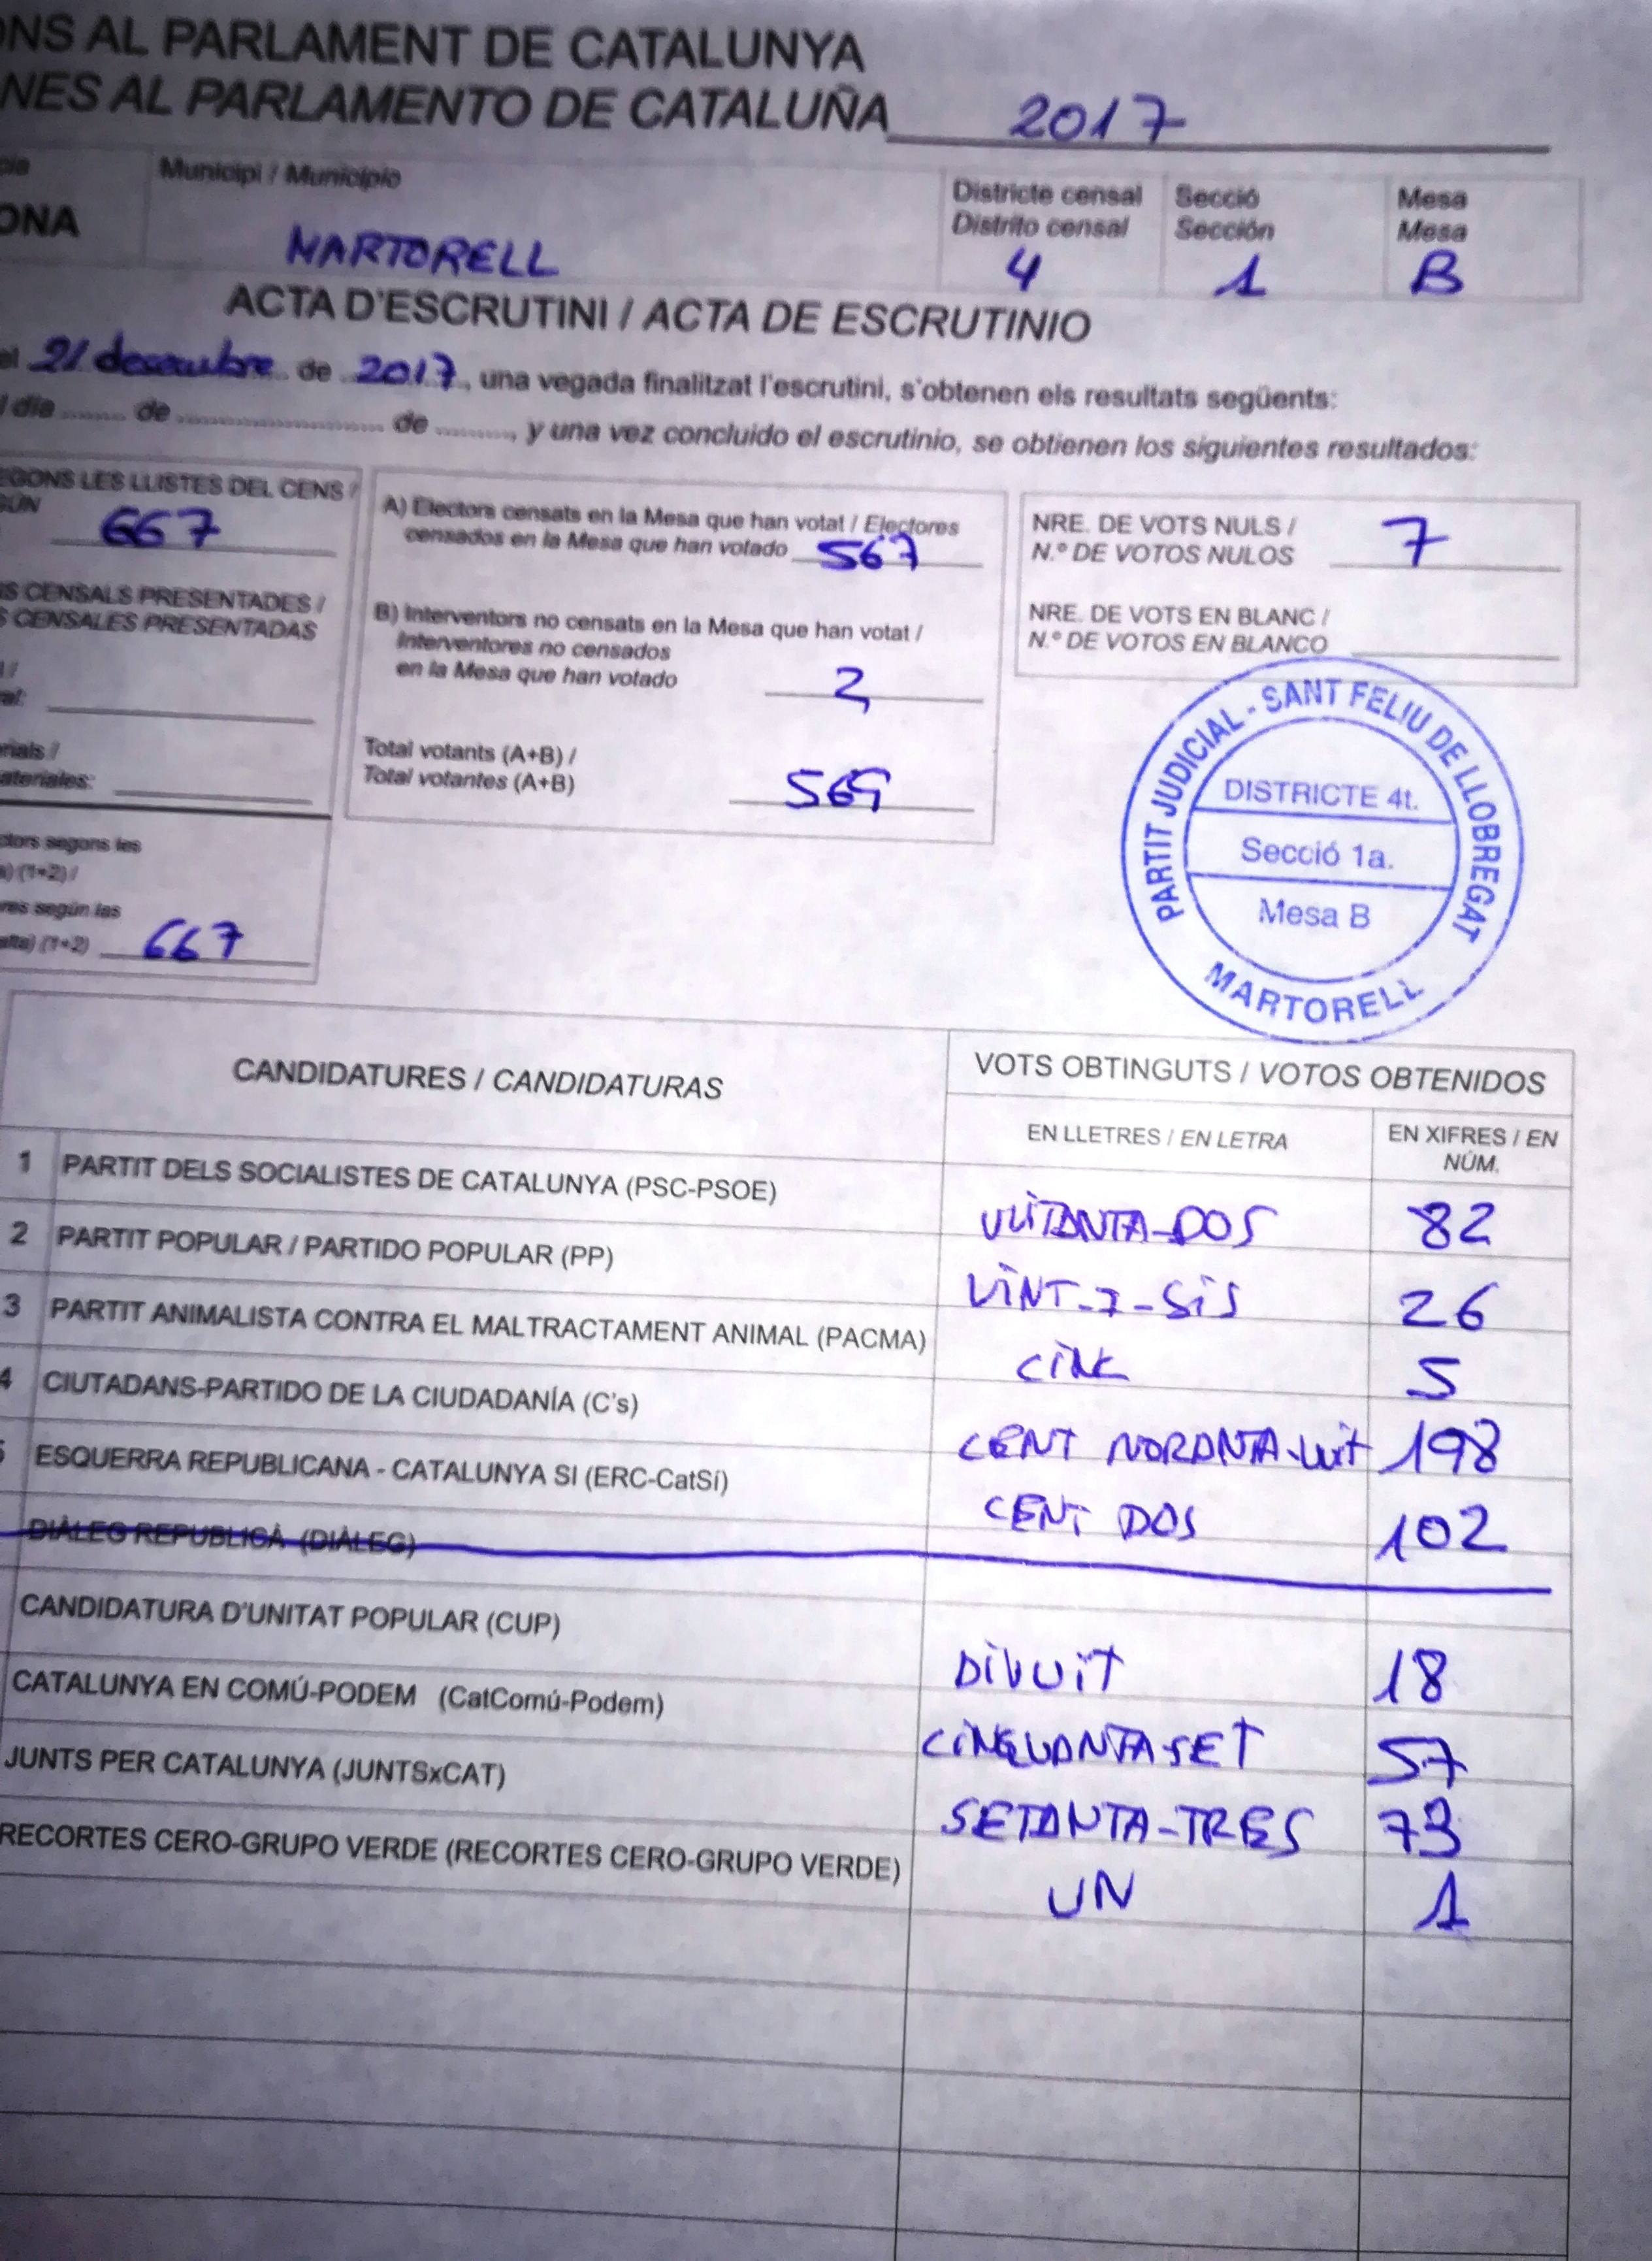 ONS AL PARLAMENT DE CATALUNYA
NES AL PARLAMENTO DE CATALUÑA 2017
Municipi / Municipio
Districte censal Secció Mesa
Distrito censal Sección Mesa
ONA MARTORELL 4 1 B
ACTA D'ESCRUTINI / ACTA DE ESCRUTINIO
el 21 desembre de 2017, una vegada finalitzat l'escrutini, s'obtenen els resultats següents:
l día ........ de ........................ de .........., y una vez concluido el escrutinio, se obtienen los siguientes resultados:
EGONS LES LLISTES DEL CENS /
GÚN
667
S CENSALS PRESENTADES /
S CENSALES PRESENTADAS
al:
rials /
ateriales:
ctors segons les
a) (1+2) /
res según las
alta) (1+2) 667
A) Electors censats en la Mesa que han votat / Electores
censados en la Mesa que han votado 567
B) Interventors no censats en la Mesa que han votat /
Interventores no censados
en la Mesa que han votado 2
Total votants (A+B) /
Total votantes (A+B) 569
NRE. DE VOTS NULS /
N.º DE VOTOS NULOS 7
NRE. DE VOTS EN BLANC /
N.º DE VOTOS EN BLANCO
PARTIT JUDICIAL - SANT FELIU DE LLOBREGAT
DISTRICTE 4t.
Secció 1a.
Mesa B
MARTORELL
CANDIDATURES / CANDIDATURAS
VOTS OBTINGUTS / VOTOS OBTENIDOS
EN LLETRES / EN LETRA
EN XIFRES / EN
NÚM.
1 PARTIT DELS SOCIALISTES DE CATALUNYA (PSC-PSOE) VUITANTA-DOS 82
2 PARTIT POPULAR / PARTIDO POPULAR (PP) VINT-I-SIS 26
3 PARTIT ANIMALISTA CONTRA EL MALTRACTAMENT ANIMAL (PACMA) CINC 5
4 CIUTADANS-PARTIDO DE LA CIUDADANÍA (C's) CENT NORANTA-Vuit 198
5 ESQUERRA REPUBLICANA - CATALUNYA SI (ERC-CatSí) CENT DOS 102
DIÀLEG REPUBLICÀ (DIÀLEG)
CANDIDATURA D'UNITAT POPULAR (CUP) DIVUIT 18
CATALUNYA EN COMÚ-PODEM (CatComú-Podem) CINQUANTA-SET 57
JUNTS PER CATALUNYA (JUNTSxCAT) SETANTA-TRES 73
RECORTES CERO-GRUPO VERDE (RECORTES CERO-GRUPO VERDE) UN 1